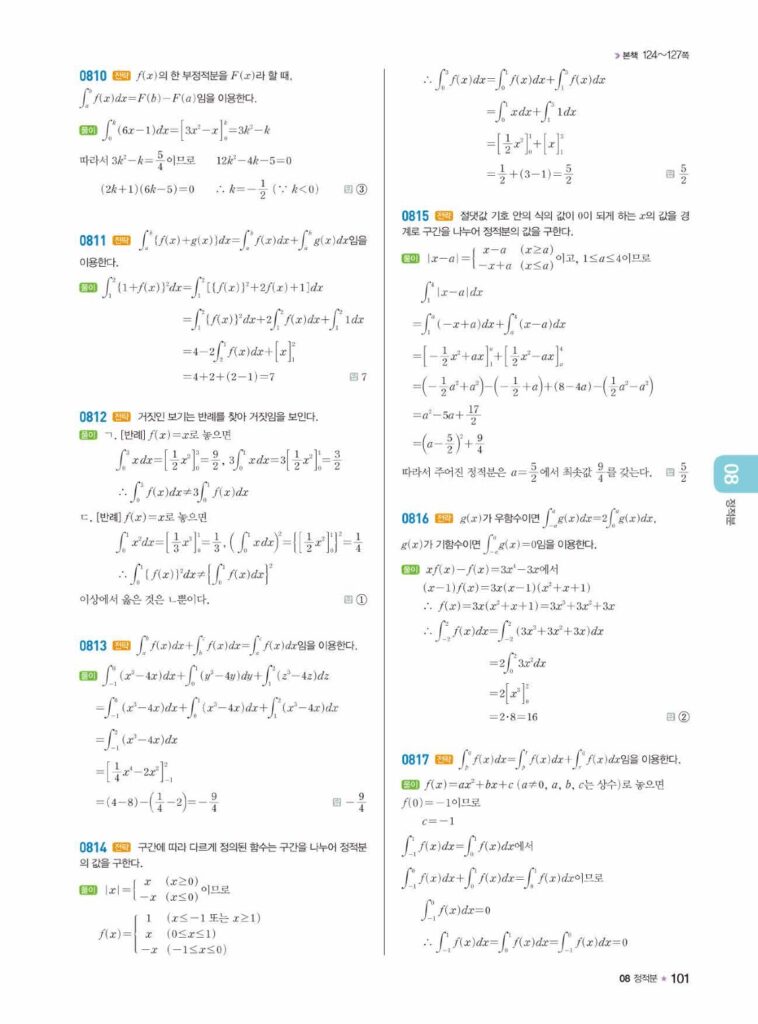 본책 124~127쪽
0810 전략 f(x)의 한 부정적분을 F(x)라 할 때,
∫_a^b f(x)dx=F(b)-F(a)임을 이용한다.
풀이 ∫_0^k (6x-1)dx=[3x²-x]_0^k=3k²-k
따라서 3k²-k=5/4이므로 12k²-4k-5=0
(2k+1)(6k-5)=0 ∴ k=-1/2 (∵ k<0) 답 ③
0811 전략 ∫_a^b {f(x)+g(x)}dx=∫_a^b f(x)dx+∫_a^b g(x)dx임을
이용한다.
풀이 ∫_1^2 {1+f(x)}²dx=∫_1^2 [{f(x)}²+2f(x)+1]dx
=∫_1^2 {f(x)}²dx+2∫_1^2 f(x)dx+∫_1^2 1dx
=4-2∫_2^1 f(x)dx+[x]_1^2
=4+2+(2-1)=7 답 7
0812 전략 거짓인 보기는 반례를 찾아 거짓임을 보인다.
풀이 ㄱ. [반례] f(x)=x로 놓으면
∫_0^3 xdx=[1/2 x²]_0^3=9/2, 3∫_0^1 xdx=3[1/2 x²]_0^1=3/2
∴ ∫_0^3 f(x)dx≠3∫_0^1 f(x)dx
ㄷ. [반례] f(x)=x로 놓으면
∫_0^1 x²dx=[1/3 x³]_0^1=1/3, (∫_0^1 xdx)²={[1/2 x²]_0^1}²=1/4
∴ ∫_0^1 {f(x)}²dx≠{∫_0^1 f(x)dx}²
이상에서 옳은 것은 ㄴ뿐이다. 답 ①
0813 전략 ∫_a^b f(x)dx+∫_b^c f(x)dx=∫_a^c f(x)dx임을 이용한다.
풀이 ∫_-1^0 (x³-4x)dx+∫_0^1 (y³-4y)dy+∫_1^2 (z³-4z)dz
=∫_-1^0 (x³-4x)dx+∫_0^1 (x³-4x)dx+∫_1^2 (x³-4x)dx
=∫_-1^2 (x³-4x)dx
=[1/4 x⁴-2x²]_-1^2
=(4-8)-(1/4-2)=-9/4 답 -9/4
0814 전략 구간에 따라 다르게 정의된 함수는 구간을 나누어 정적분
의 값을 구한다.
풀이 |x|={ x (x≥0) / -x (x≤0) 이므로
f(x)={ 1 (x≤-1 또는 x≥1) / x (0≤x≤1) / -x (-1≤x≤0)
∴ ∫_0^3 f(x)dx=∫_0^1 f(x)dx+∫_1^3 f(x)dx
=∫_0^1 xdx+∫_1^3 1dx
=[1/2 x²]_0^1+[x]_1^3
=1/2+(3-1)=5/2 답 5/2
0815 전략 절댓값 기호 안의 식의 값이 0이 되게 하는 x의 값을 경
계로 구간을 나누어 정적분의 값을 구한다.
풀이 |x-a|={ x-a (x≥a) / -x+a (x≤a) 이고, 1≤a≤4이므로
∫_1^4 |x-a|dx
=∫_1^a (-x+a)dx+∫_a^4 (x-a)dx
=[-1/2 x²+ax]_1^a+[1/2 x²-ax]_a^4
=(-1/2 a²+a²)-(-1/2+a)+(8-4a)-(1/2 a²-a²)
=a²-5a+17/2
=(a-5/2)²+9/4
따라서 주어진 정적분은 a=5/2에서 최솟값 9/4를 갖는다. 답 5/2
0816 전략 g(x)가 우함수이면 ∫_-a^a g(x)dx=2∫_0^a g(x)dx,
g(x)가 기함수이면 ∫_-a^a g(x)=0임을 이용한다.
풀이 xf(x)-f(x)=3x⁴-3x에서
(x-1)f(x)=3x(x-1)(x²+x+1)
∴ f(x)=3x(x²+x+1)=3x³+3x²+3x
∴ ∫_-2^2 f(x)dx=∫_-2^2 (3x³+3x²+3x)dx
=2∫_0^2 3x²dx
=2[x³]_0^2
=2·8=16 답 ②
0817 전략 ∫_p^q f(x)dx=∫_p^r f(x)dx+∫_r^q f(x)dx임을 이용한다.
풀이 f(x)=ax²+bx+c (a≠0, a, b, c는 상수)로 놓으면
f(0)=-1이므로
c=-1
∫_-1^1 f(x)dx=∫_0^1 f(x)dx에서
∫_-1^0 f(x)dx+∫_0^1 f(x)dx=∫_0^1 f(x)dx이므로
∫_-1^0 f(x)dx=0
∴ ∫_-1^1 f(x)dx=∫_0^1 f(x)dx=∫_-1^0 f(x)dx=0
08
정적분
08 정적분 ★ 101